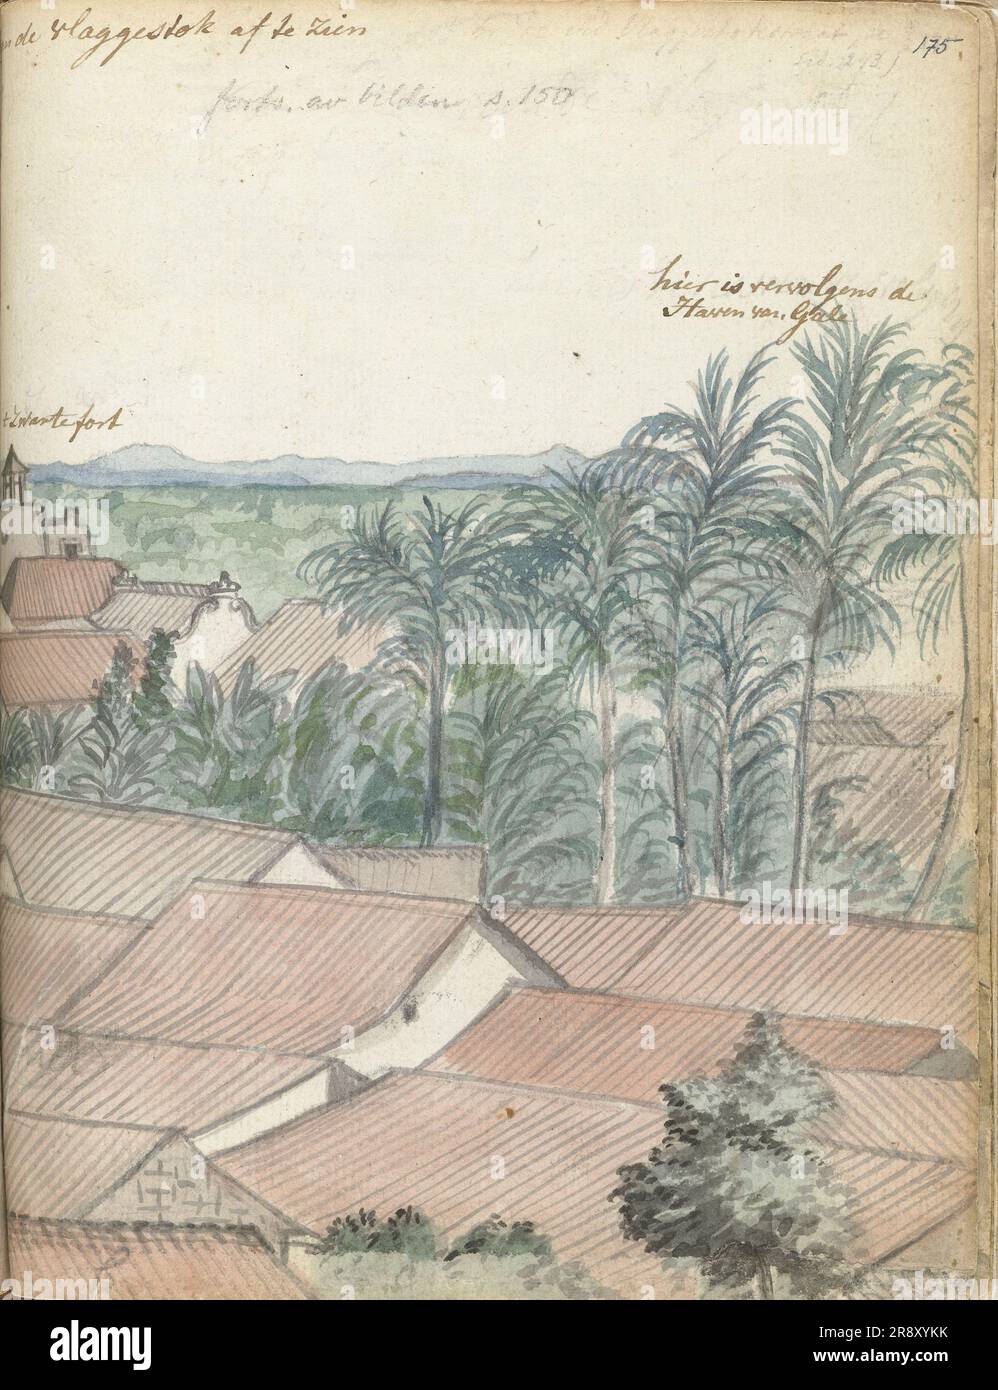 de vlaggestok af te zien
175
forts. av bilden s. 150
hier is vervolgens de
Haven van Gale
t Zwarte fort
alamy
Image ID: 2R8XYKK
www.alamy.com